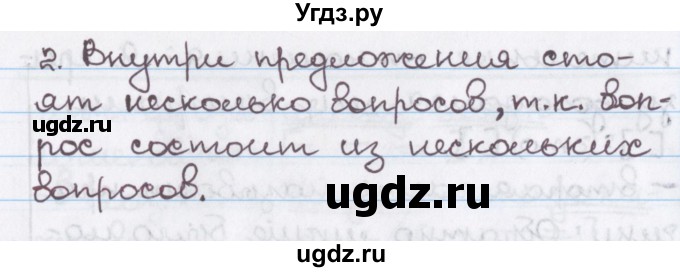 Угдз.ру
2. Внутри предложения сто-
ят несколько вопросов, т.к. воп-
угдз.ру
рос состоит из нескольких
вопросов.
ugdz.ru
ugdz.ru